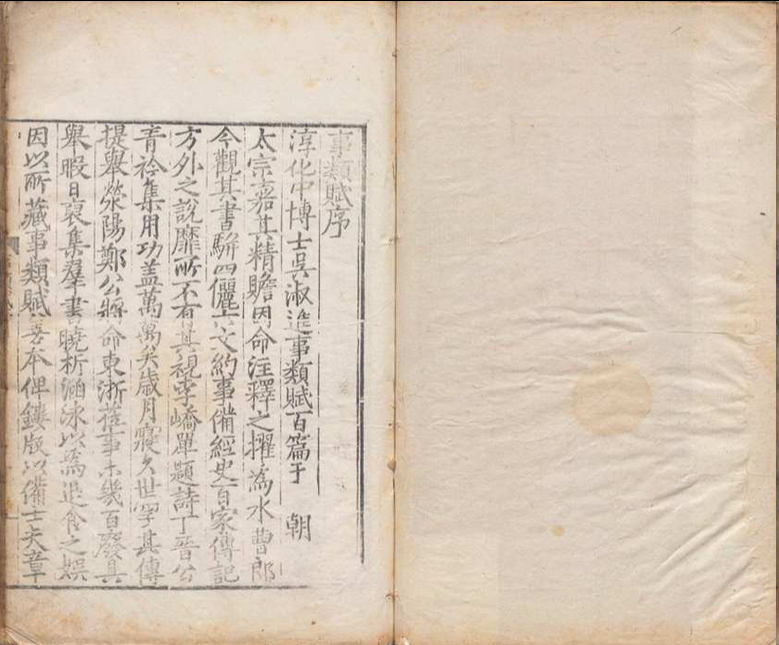 事類賦序
淳化中博士吳淑進事類賦百篇于 朝
太宗嘉其精贍因命注釋之擢為水曹郎
今觀其書駢四儷六文約事備經史百家傳記
方外之說靡所不有其視李嶠單題詩丁晉公
青衿集用功盖萬萬矣歲月寖久世罕其傳
提舉滎陽鄭公將命東浙莅事未幾百廢具
舉暇日裒集羣書曉析涵泳以為退食之娛
因以所藏事類賦善本俾鏤版以備士夫章